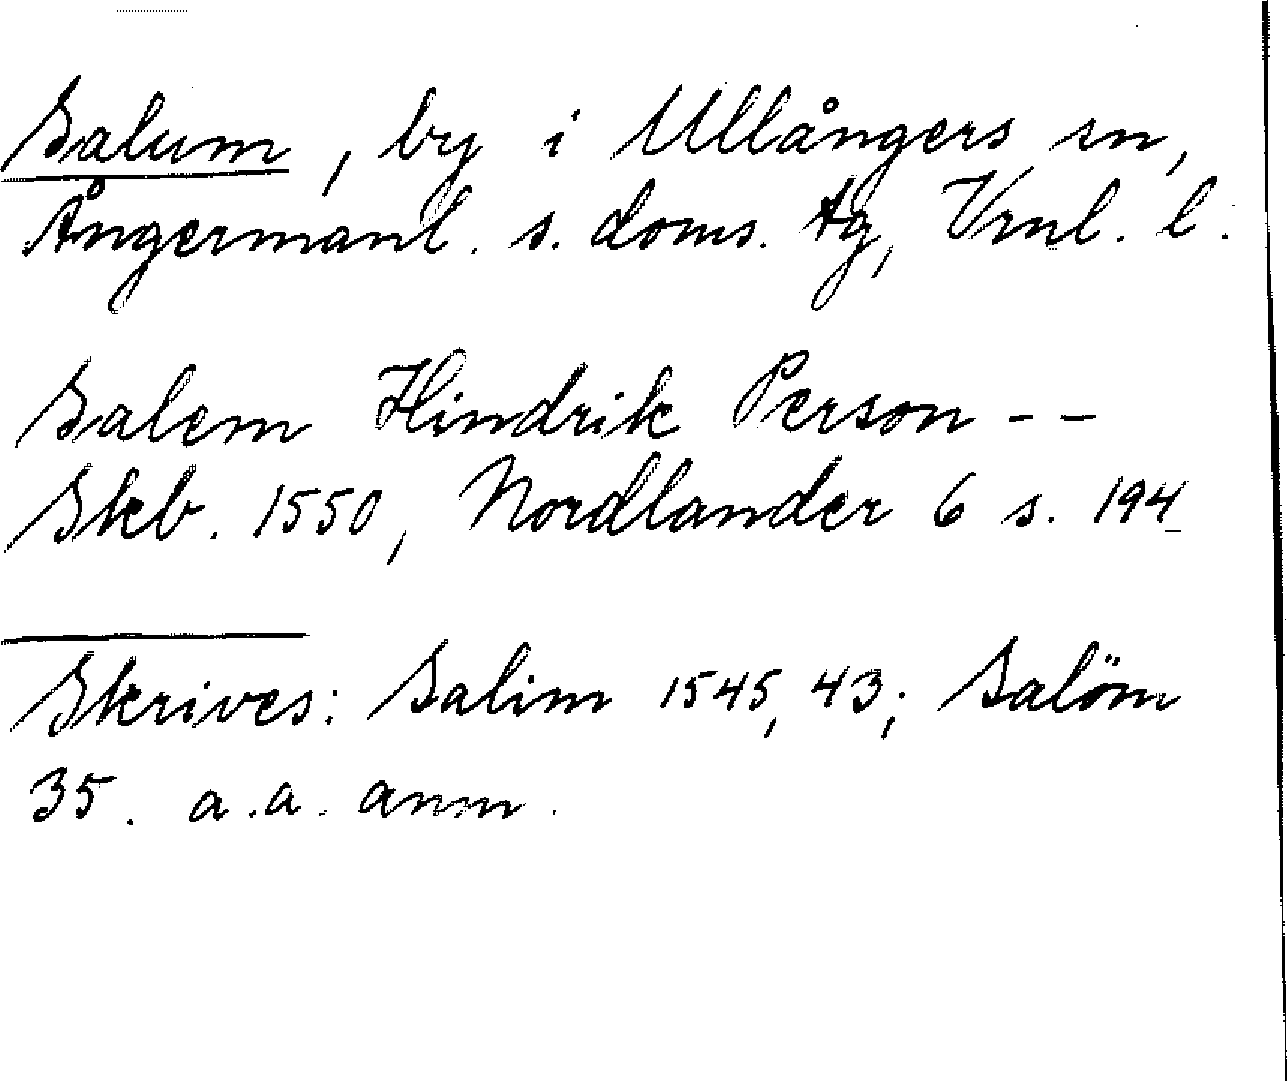 Salum, by i Ullångers sn,
Ångermanl. s. doms. tg, Vrnl. l.
Salem Hindrik Person - -
Skb. 1550, Nordlander 6 s. 194
Skrives: Salim 1545, 43; Salöm
35. a.a. anm.